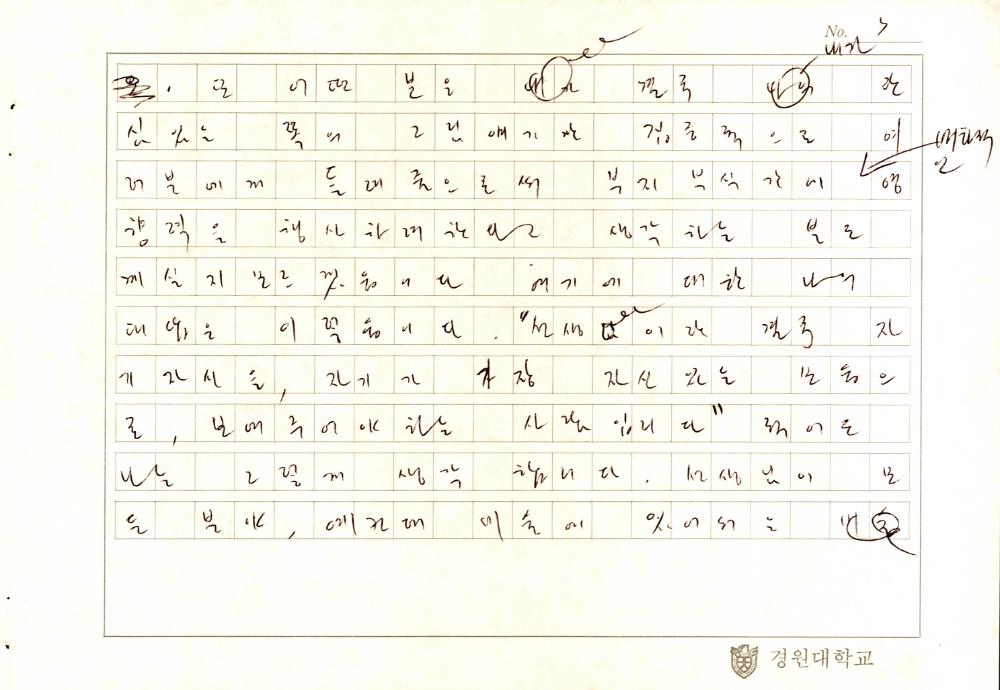 No.
내가
또 어떤 분은 내가 결국 나의 관
심 있는 쪽의 그림 얘기만 집중적으로 여
러분에게 들려줌으로써 부지부식간에 영
향력을 행사하려 한다고 생각하는 분도
계실지 모르겠읍니다. 여기에 대한 나의
대답은 이렇읍니다. "선생이란 결국 자
기 자신을, 자기가 가장 자신 있는 모습으
로, 보여주어야 하는 사람입니다" 적어도
나는 그렇게 생각합니다. 선생님이 모
든 분야, 예컨대 미술에 있어서는
경원대학교